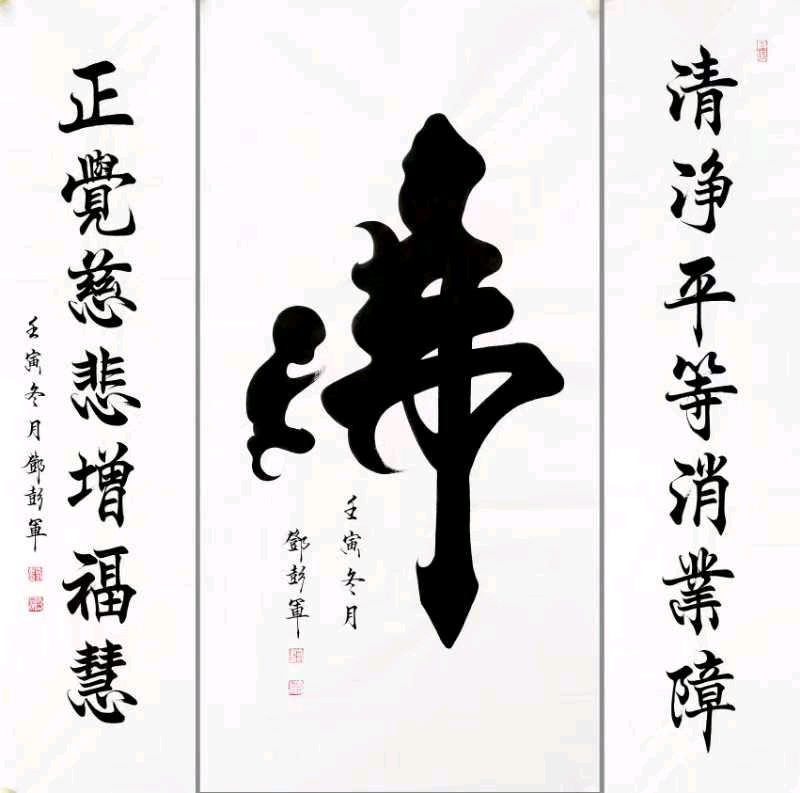 清淨平等消業障
佛
壬寅冬月
鄧彭軍
正覺慈悲增福慧
壬寅冬月鄧彭軍